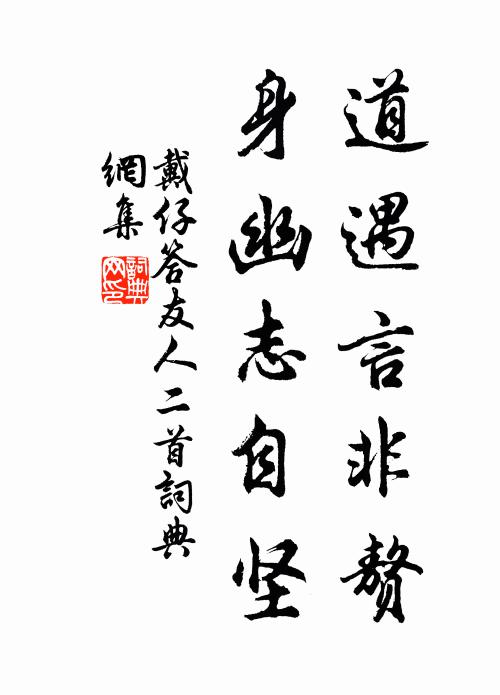 道遇言非赘
身幽志自坚
戴仔答友人二首詞典
網集
詞典網印